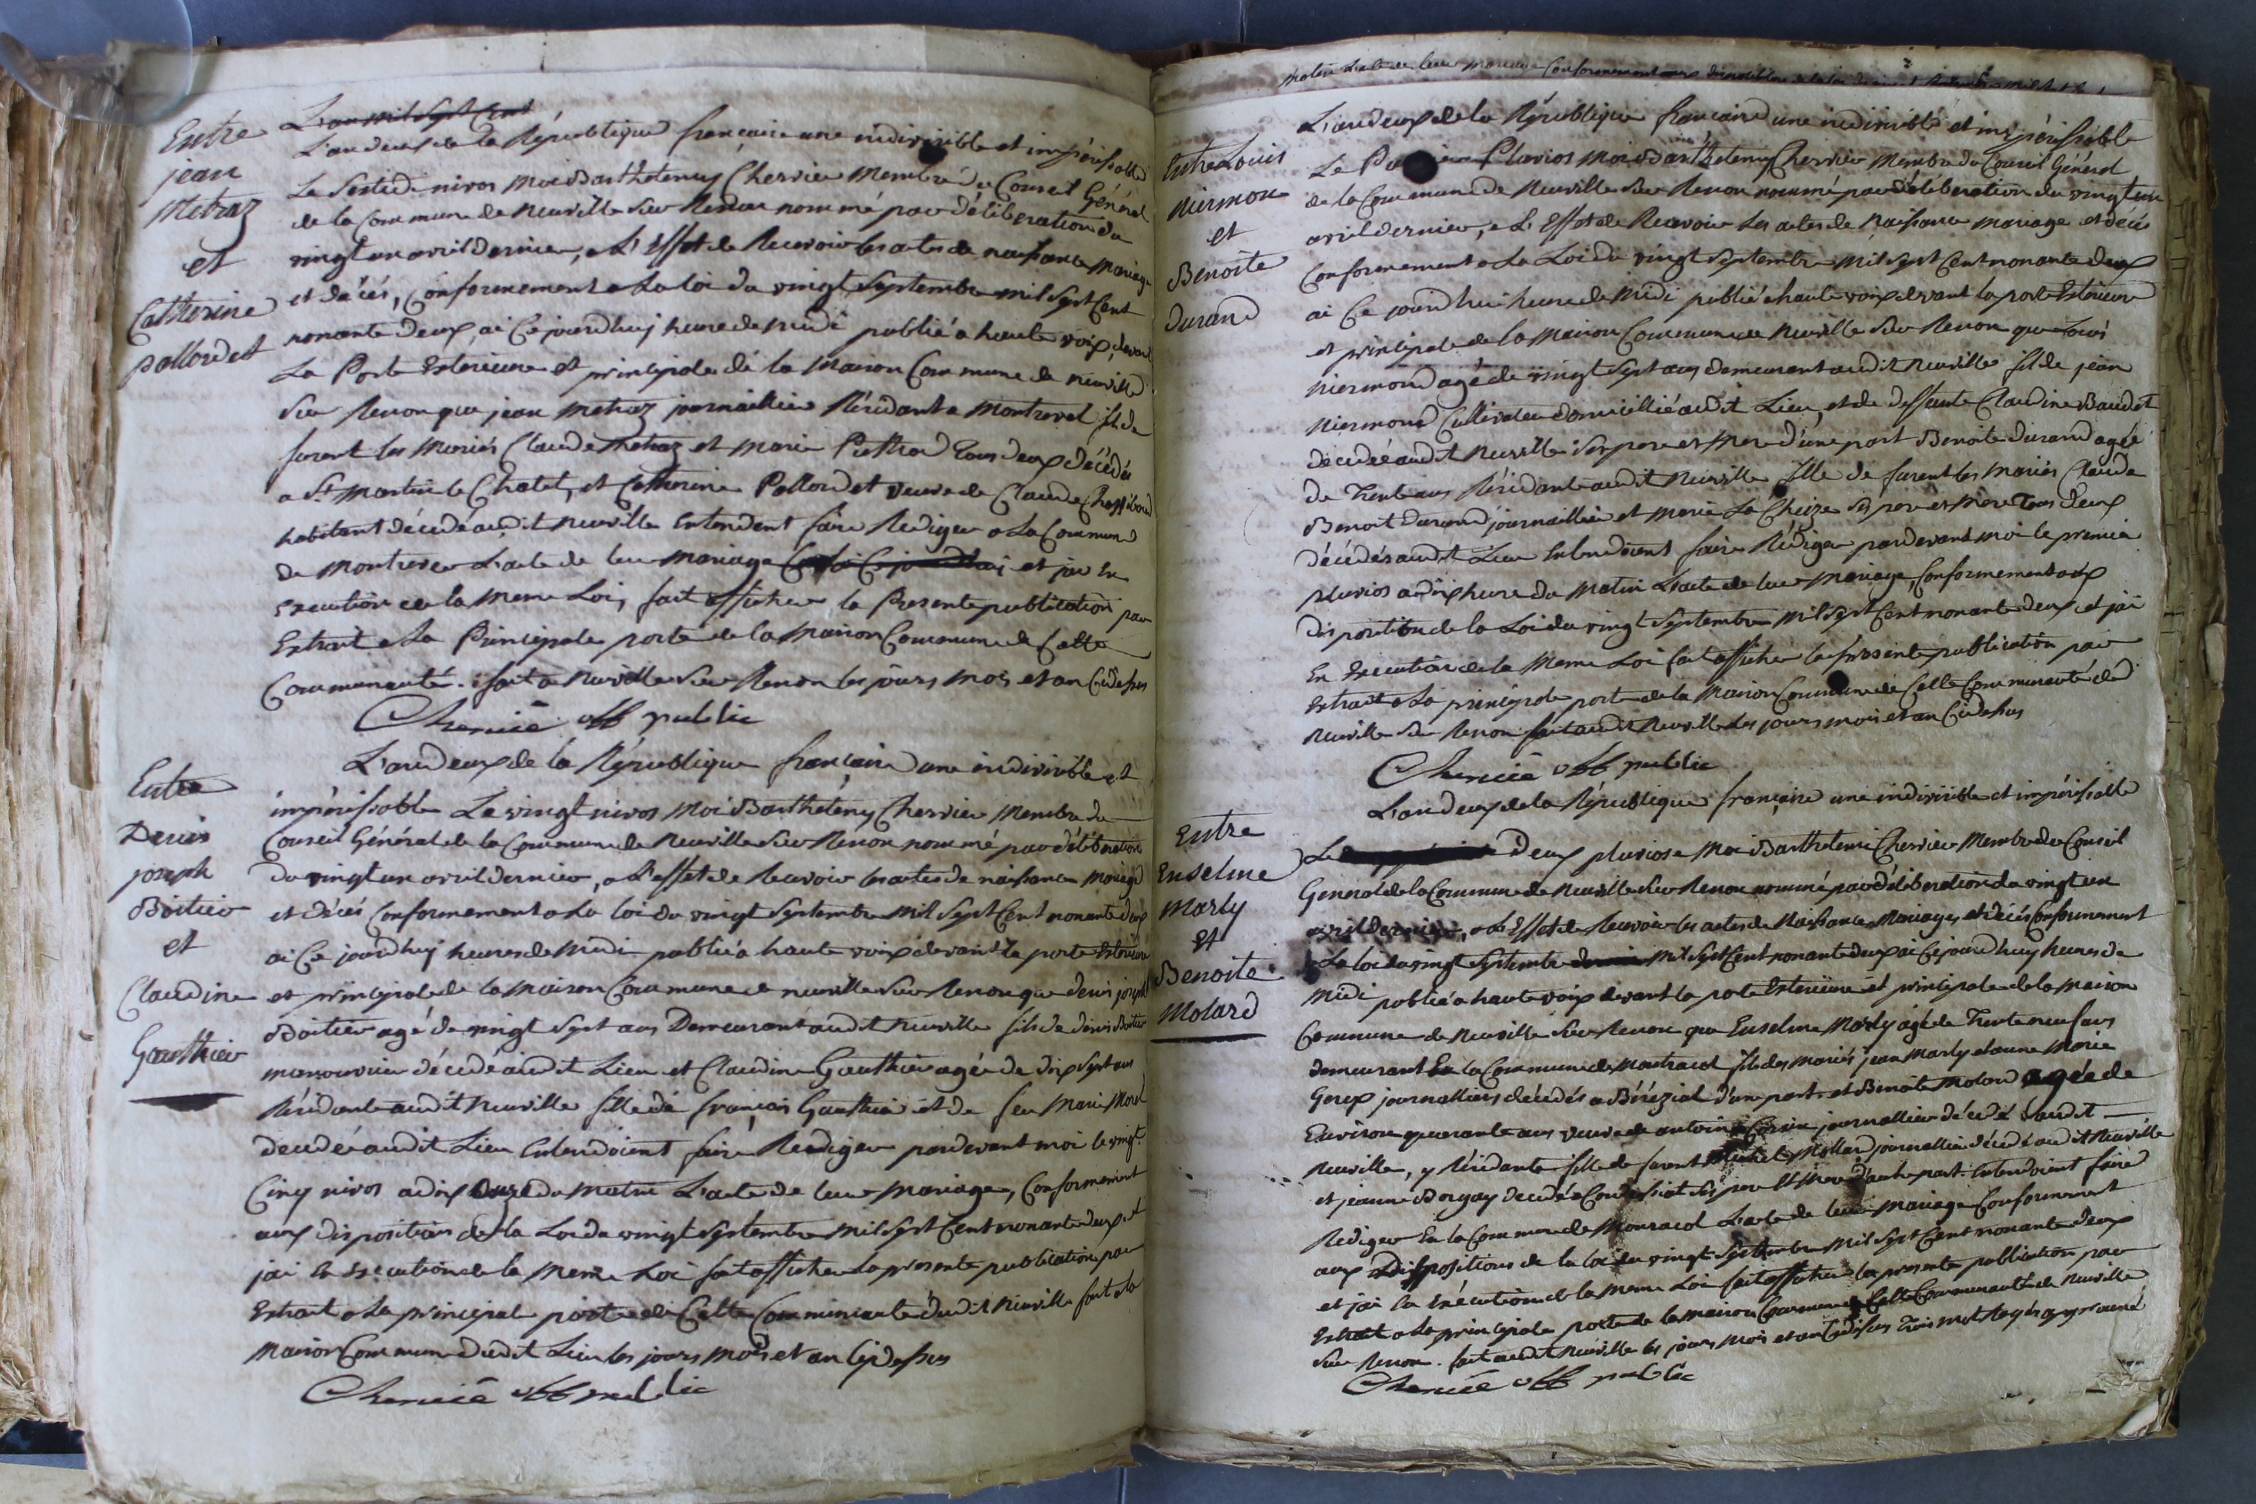 Entre
jean
Metraz
et
Catherine
pallordet
L'an mil sept cent
L'an deux de la République française une indivisible et impérissable
Le sextidi nivos Moi Barthelemy Cherrier Membre du Conseil Général
de la Commune de Neuville sur Renon nommé par délibération du
vingt un avril dernier, a L'Effet de Recevoir les actes de naissance mariage
et décés, Conformement a La loi du vingt Septembre mil sept Cent
nonante deux, ai Ce jourd'huy heure de midi publié a haute voix, devant
La Porte Exterieure et principale de la Maison Commune de neuville
sur Renon que jean Metraz journaillier Résidant a Montrevel fils de
furent les Mariés Claude Metraz et Marie Puthod tous deux décédés
a St Martin le Chatel, et Catherine Pallordet veuve de Claude
habitant décédé audit neuville Entendent faire Rediger a La Commune
de Montrevel L'acte de leur mariage et jai En
Execution de la Meme Loi, fait afficher la Presente publication par
Extrait a La Principale porte de la Maison Commune de Cette
Communauté. fait a Neuville sur Renon les jours mois et an Cydessus
Cherrier off public
Entre
Denis
joseph
Boitier
et
Claudine
Gauthier
L'an deux de la République française une indivisible et
impérissable Le vingt nivos Moi Barthelemy Cherrier Membre du
Conseil Général de la Commune de Neuville sur Renon nommé par délibération
du vingt un avril dernier, a L'effet de Recevoir les actes de naissance mariage
et décés Conformement a La loi du vingt Septembre mil sept Cent nonante deux
ai Ce jourd'huy heures de midi publié a haute voix devant la porte Exterieure
et principale de la Maison Commune de neuville sur Renon que denis joseph
Boitier agé de vingt sept ans Demeurant audit neuville fils de denis Boitier
manouvrier décédé audit Lieu et Claudine Gauthier agée de dix sept ans
Résidante audit neuville fille de françois Gauthier et de feu Marie Morel
decedée audit Lieu Entendoient faire Rediger pardevant moi le vingt
Cinq nivos a dix du matin L'acte de leur mariage, Conformement
aux dispositions de la Loi du vingt septembre mil sept Cent nonante deux et
jai En Execution de la Meme Loi fait afficher La presente publication par
Extrait a La principal porte de Cette Communauté dudit Neuville fait a la
Maison Commune dudit Lieu les jours mois et an Cydessus
Cherrier off public
leur mariage Conformement aux dispositions de la loi du vingt Septembre mil sept Cent
Entre Louis
Niermon
et
Benoite
Durand
L'an deux de la République française une indivisible et impérissable
Le Pluvios Moi Barthelemy Cherrier Membre du Conseil Général
de la Commune de Neuville sur Renon nommé par délibération du vingt un
avril dernier, a L'Effet de Recevoir Les actes de Naissance mariage et décés
Conformement a La Loi du vingt Septembre mil sept Cent nonante deux
ai Ce jourd'hui heure de midi publié a haute voix devant la porte Exterieure
et principale de la Maison Commune de Neuville sur Renon que Louis
Niermond agé de vingt sept ans demeurant audit Neuville fil de jean
Niermond Cultivateur domicillié audit Lieu, et de deffunte Claudine Baudet
décedée audit Neuville ses pere et Mere d'une part Benoite durand agée
de Trente ans Résidante audit Neuville fille de furent les mariés Claude
Benoit durand journaillier et Marie La Cheize ses pere et Mere Tous deux
décédés audit Lieu Entendoient faire Rédiger pardevant moi le premier
pluvios a dix heure du matin L'acte de leur mariage, Conformement aux
disposition de la Loi du vingt septembre mil sept Cent nonante deux et jai
En Execution de la Meme Loi fait afficher la présente publication par
Extrait a La principale porte de la Maison Commune de Cette Communauté de
Neuville sur Renon fait audit Neuville Les jours mois et an Cydessus
Cherrier off public
Entre
Enselme
Marly
Et
Benoite
Molard
L'an deux de la République française une indivisible et impérissable
Le Deux pluviose Moi Barthelemi Cherrier Membre du Conseil
General de la Commune de Neuville sur Renon nommé par délibération du vingt un
avril dernier, a L'Effet de Recevoir les actes de Naissance Mariages et décés Conformement
a La loi du vingt Septembre mil sept Cent nonante deux ai Ce jourd'huy heures de
midi publié a haute voix devant la porte Exterieure et principale de la maison
Commune de Neuville sur Renon que Enselme Marly agé de Trente neuf ans
demeurant En la Commune de Montracol fils des mariés jean Marly et anne Marie
journalliers décédés a Béréziat d'une part, et Benoite Molard agée de
Environ quarante ans veuve de antoine journallier décédé audit
Neuville, y Résidante fille de furent Michel Mollard journallier décédé audit Neuville
et jeanne Borgay decedée a Confrançon ses pere Et Mere d'autre part. Entendoient faire
Rediger En la Commune de Monracol L'acte de leur mariage Conformement
aux Dispositions de la loi du vingt Septembre mil sept Cent nonante deux
et jai En Exécution de la Meme Loi fait afficher la presente publication par
Extrait a La principale porte de la maison Commune de Cette Communauté de Neuville
sur Renon. fait audit Neuville les jours mois et an Cydessus Trois mot Rayés approuvé
Cherrier off public